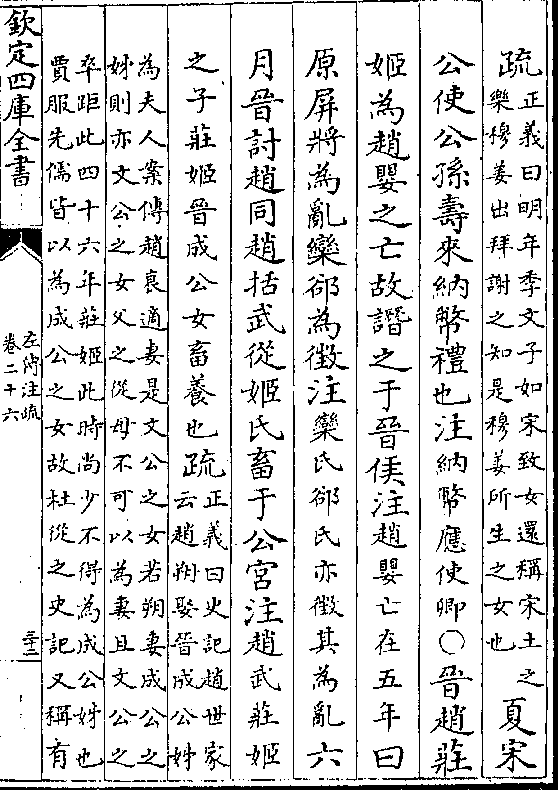 疏正義曰明年季文子如宋致女還稱宋土之
樂穆姜出拜謝之知是穆姜所生之女也夏宋
公使公孫壽來納幣禮也注納幣應使卿○晉趙莊
姬為趙嬰之亡故譖之于晉侯注趙嬰亡在五年曰
原屏將為亂欒郤為徵注欒氏郤氏亦徵其為亂六
月晉討趙同趙括武從姬氏畜于公宮注趙武莊姬
之子莊姬晉成公女畜養也疏正義曰史記趙世家
云趙朔娶晉成公姊
為夫人案傳趙衰適妻是文公之女若朔妻成公之
姊則亦文公之女父之從母不可以為妻且文公之
卒距此四十六年莊姬此時尚少不得為成公姊也
賈服先儒皆以為成公之女故杜從之史記又稱有
欽定四庫全書
左傳注疏
卷二十六
三十三